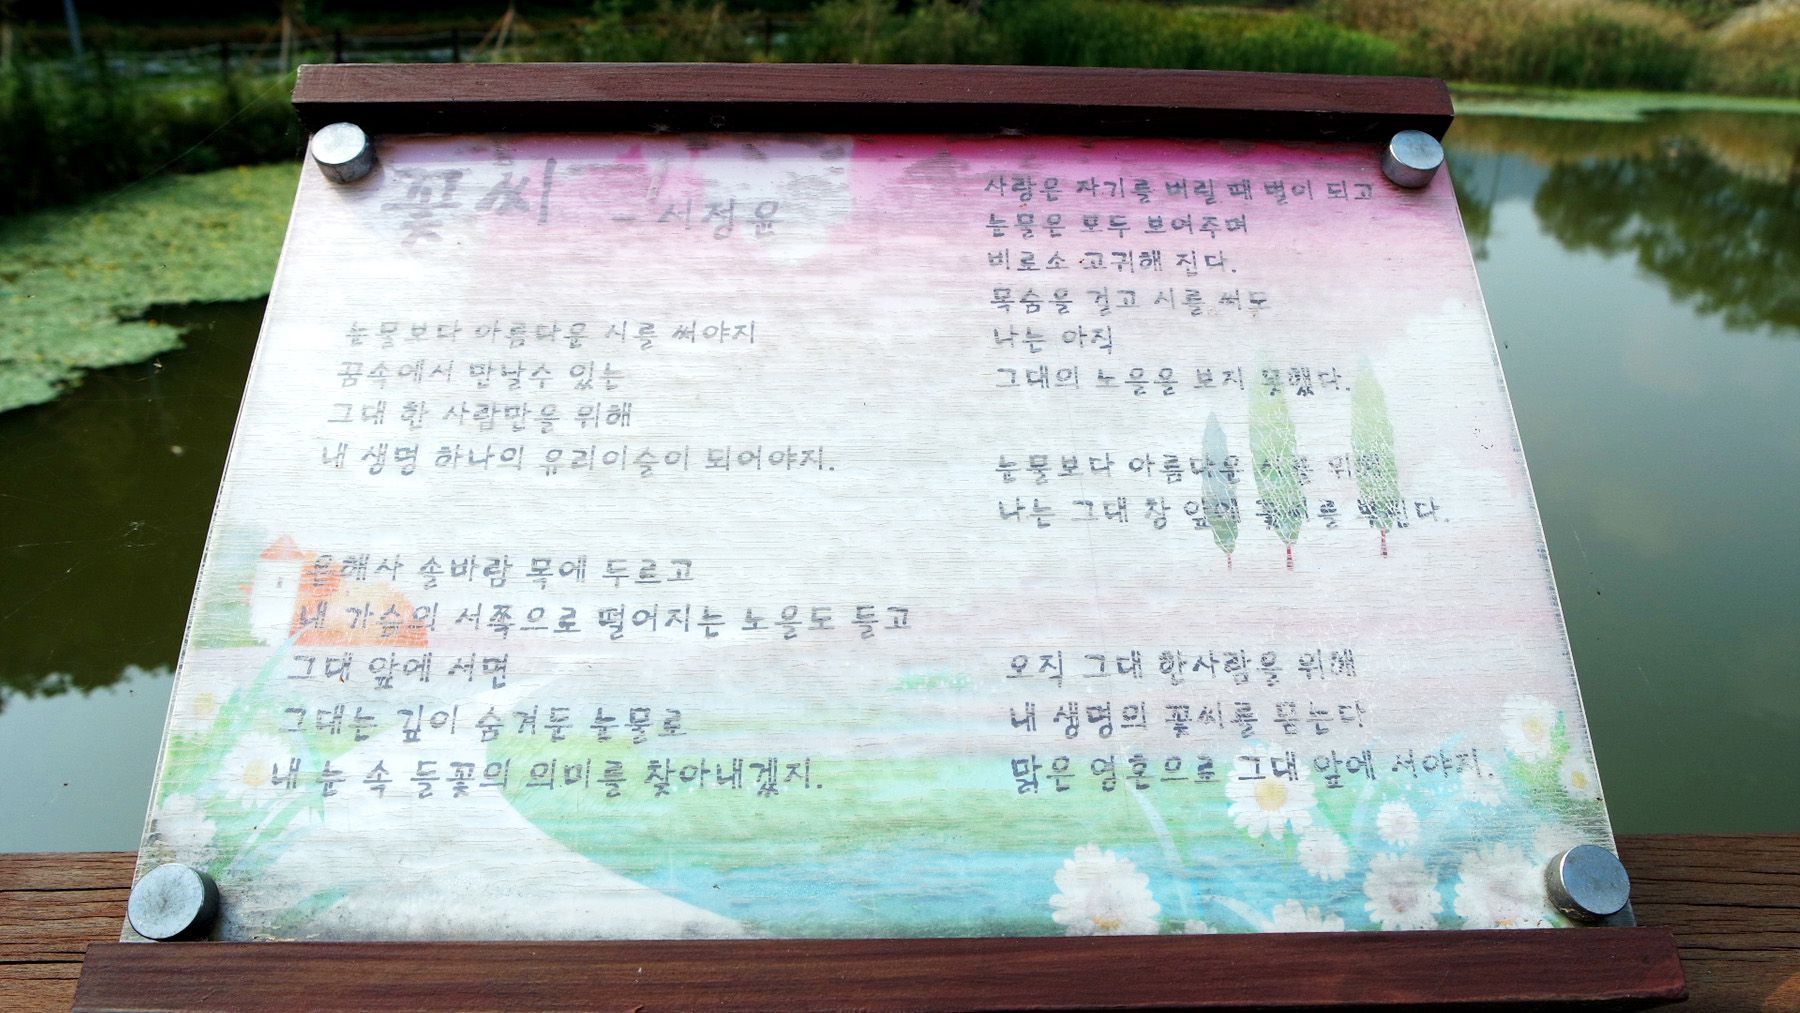 꽃씨
- 서정윤
눈물보다 아름다운 시를 써야지
꿈속에서 만날수 있는
그대 한 사람만을 위해
내 생명 하나의 유리이슬이 되어야지.
은해사 솔바람 목에 두르고
내 가슴의 서쪽으로 떨어지는 노을도 들고
그대 앞에 서면
그대는 깊이 숨겨둔 눈물로
내 눈 속 들꽃의 의미를 찾아내겠지.
사랑은 자기를 버릴 때 별이 되고
눈물은 모두 보여주며
비로소 고귀해 진다.
목숨을 걸고 시를 써도
나는 아직
그대의 노을을 보지 못했다.
눈물보다 아름다운 시를 위해
나는 그대 창 앞에 꽃씨를 뿌린다.
오직 그대 한사람을 위해
내 생명의 꽃씨를 묻는다
맑은 영혼으로 그대 앞에 서야지.